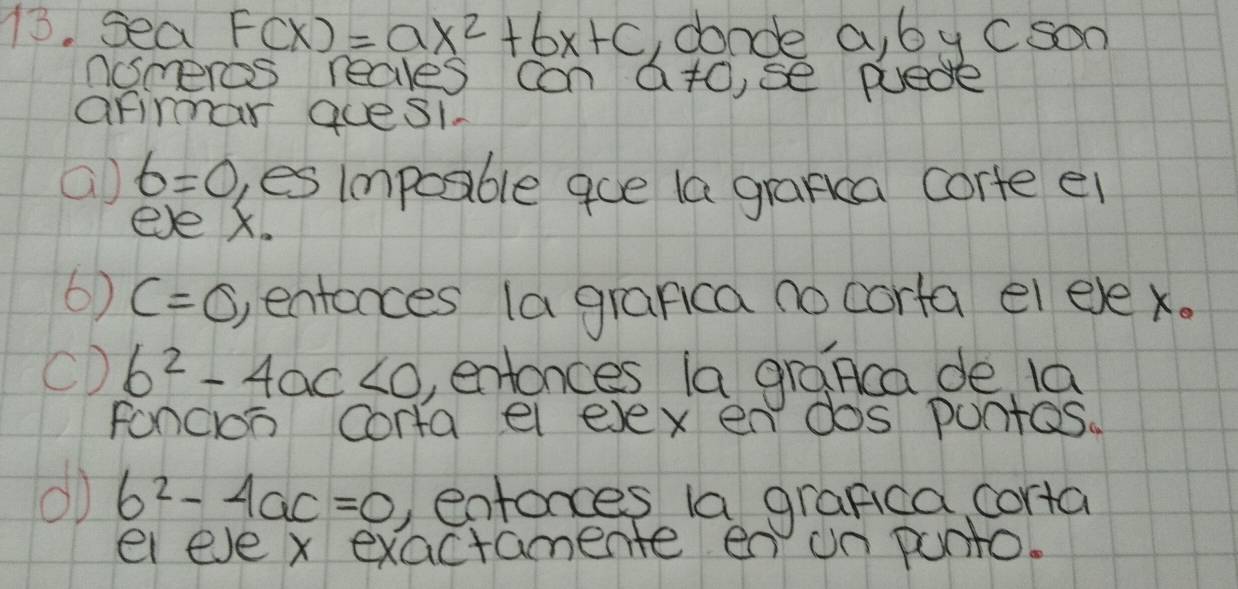 13. Sea F(x) = ax² + bx + c, donde a, b y c son
números reales con a ≠ 0, se puede
afirmar que si.
a) b = 0, es imposible que la grafica corte el
eje x.
b) c = 0, entonces la grafica no corta el eje x.
c) b² - 4ac < 0, entonces la gráfica de la
función corta el eje x en dos puntos.
d) b² - 4ac = 0, entonces la grafica corta
el eje x exactamente en un punto.